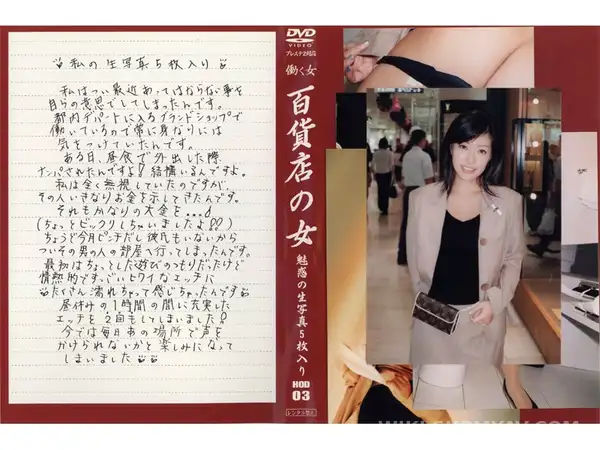 私の生写真5枚入り
私はつい最近あってはならない事を
自らの意思でしてしまったんです。
都内デパートに入るブランドショップで
働いているので常に身なりには
気をつけていたんです。
ある日、昼食で外出した際、
ナンパされたんですよ?結構いるんですよ。
私は全く無視していたのですが、
その人いきなりお金を示してきたんです。
それもかなりの大金を…♪
(ちょっとビックリしちゃいましたよ!?)
ちょうど今月ピンチだし彼氏もいないから
ついその男の人の部屋へ行ってしまったんです。
最初はちょっとした遊びのつもりだったけど
情熱的ですっごいヒワイなエッチに
たくさん濡れちゃって感じちゃったんです
昼休みの1時間の間に充実した
エッチを2回もしてしまいました?
今では毎日あの場所で声を
かけられないかと楽しみになって
しまいました
DVD
VIDEO
プレステ2対応
働く女
百貨店の女
魅惑の生写真5枚入り
HOD
03
レンタル禁止